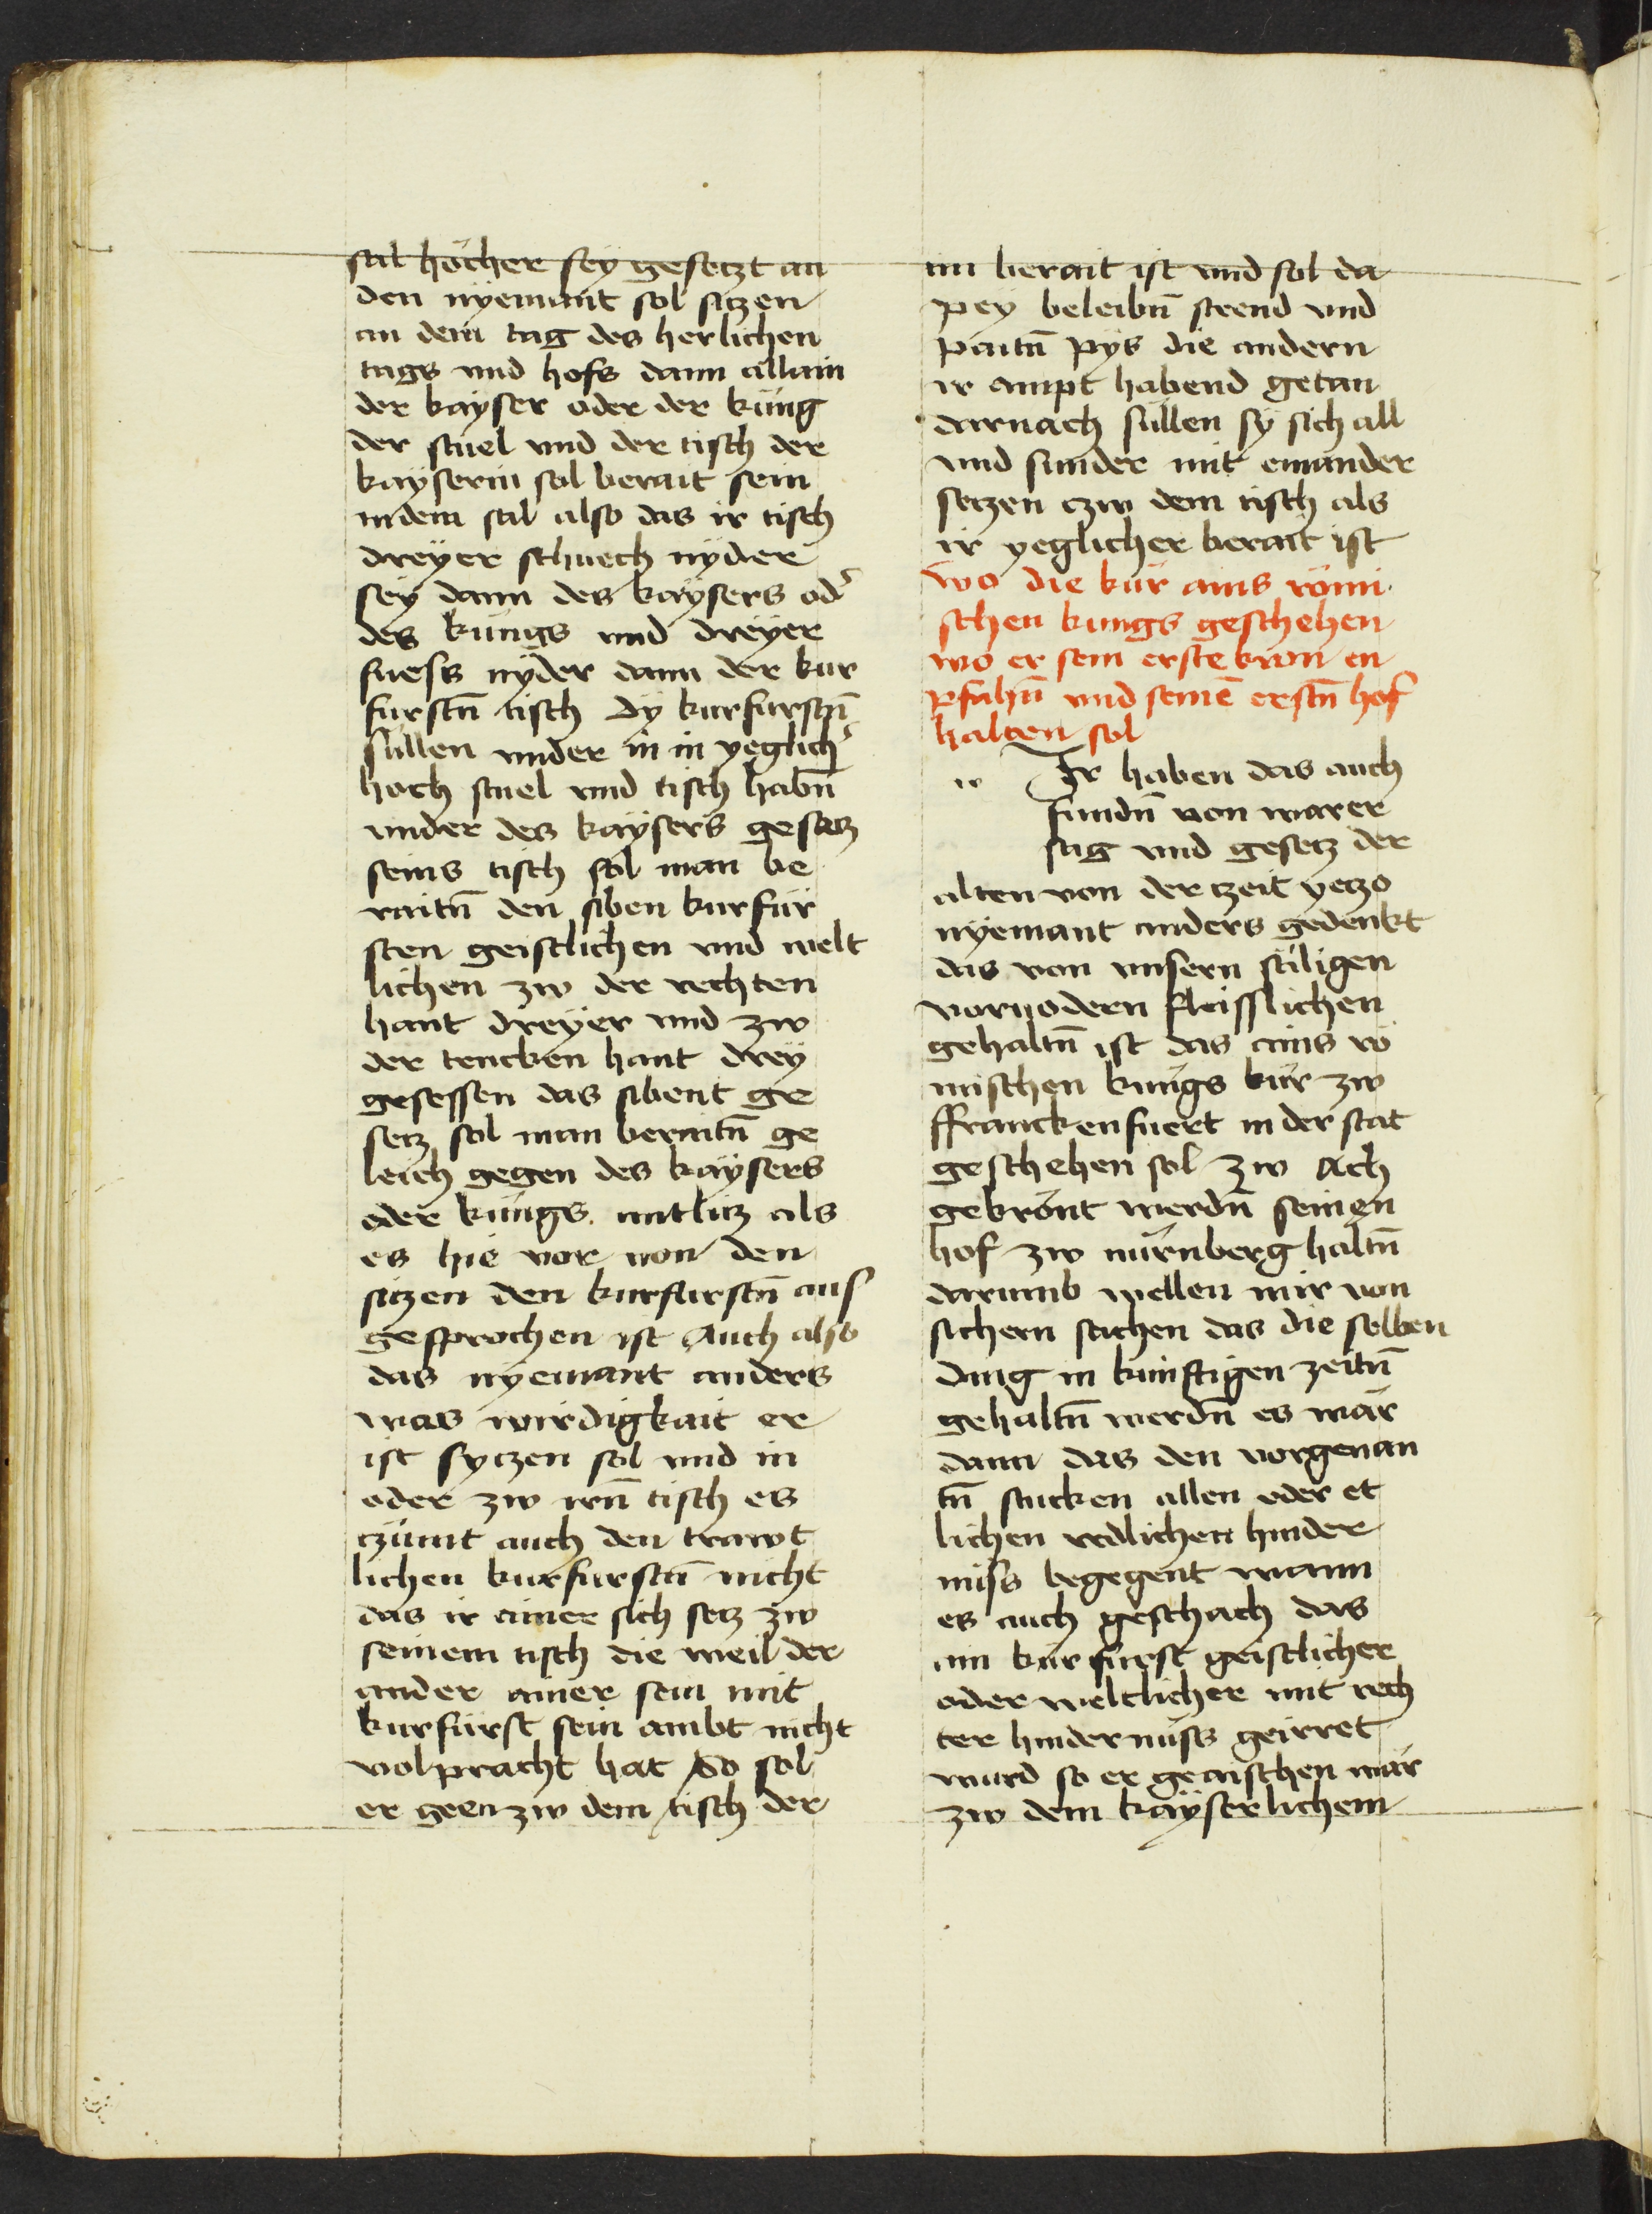 stul höcher sey gesetzt an
den nyemant sol sitzen
an dem tag des herlichen
tags und hofs dann allain
der kayser oder der küng
der stuel und der tisch der
kayserin sol berait sein
in dem stal also das ir tisch
dreyer schuech nyder
sey dann des kaysers od̛
des küngs und dreyer
fuess nyder dann der kur
fursten̄ tisch Dy kurfurstn̄
süllen under in in yeglich̛
hoch stuel und tisch habn̄
under des kaysers gesatz
seins tisch sol man be
raitn̄ den siben kurfür
sten geistlichen und welt
lichen zw der rechten
hant dreyer und zw
der tencken hant drey
gesessen das sibent ge
setz sol man beraitn̄ ge
leich gegen des kaysers
oder küngs antlitz als
es hie vor von den
sitzen den kurfurstn̄ aus
gesprochen ist Auch also
das nyemant anders
was wirdigkait er
ist syczen sol und in
oder zw irn̄ tisch es
czümt auch den trawt
lichen kurfurstn̄ nicht
das ir ainer sich setz zw
seinem tisch die weil der
ander ainer sein mit
kurfürst sein ambt nicht
volpracht hat So sol
er geen zw dem tisch der
im berait ist und sol da
pey beleibn̄ steend und
paitn̄ pys die andern
ir ampt habend getan
darnach süllen sy sich all
und sunder mit einander
setzen czw dem tisch als
ir yeglicher berait ist
wo die kür ains römi
schen kungs geschehen
wo er sein erste kron en
pfahn̄ und seinē erstn̄ hof
halten sol
w Ir haben das auch
fundn̄ von warer
sag und gesetz der
alten von der czeit yetzo
nyemant anders gedenkt
das von unsern säligen
vorvodern fleisslichen
gehaltn̄ ist das ains rö
mischen kungs kür zw
ffranckenfuert in der stat
geschehen sol zw Ach
gekrönt werdn̄ seinen
hof zw nürnberg haltn̄
darumb wellen mir von
sichern sachen das die selben
ding in künftigen zeitn̄
gehaltn̄ werdn̄ es wär
dann das den vorgenan
tn̄ stucken allen oder et
lichen redlichen hinder
niss begegent wann
es auch geschach das
ain kürfürst geistlicher
oder weltlicher mit rech
ter hindernüss geirret
würd so er geaischen wär
zw dem kayserlichem